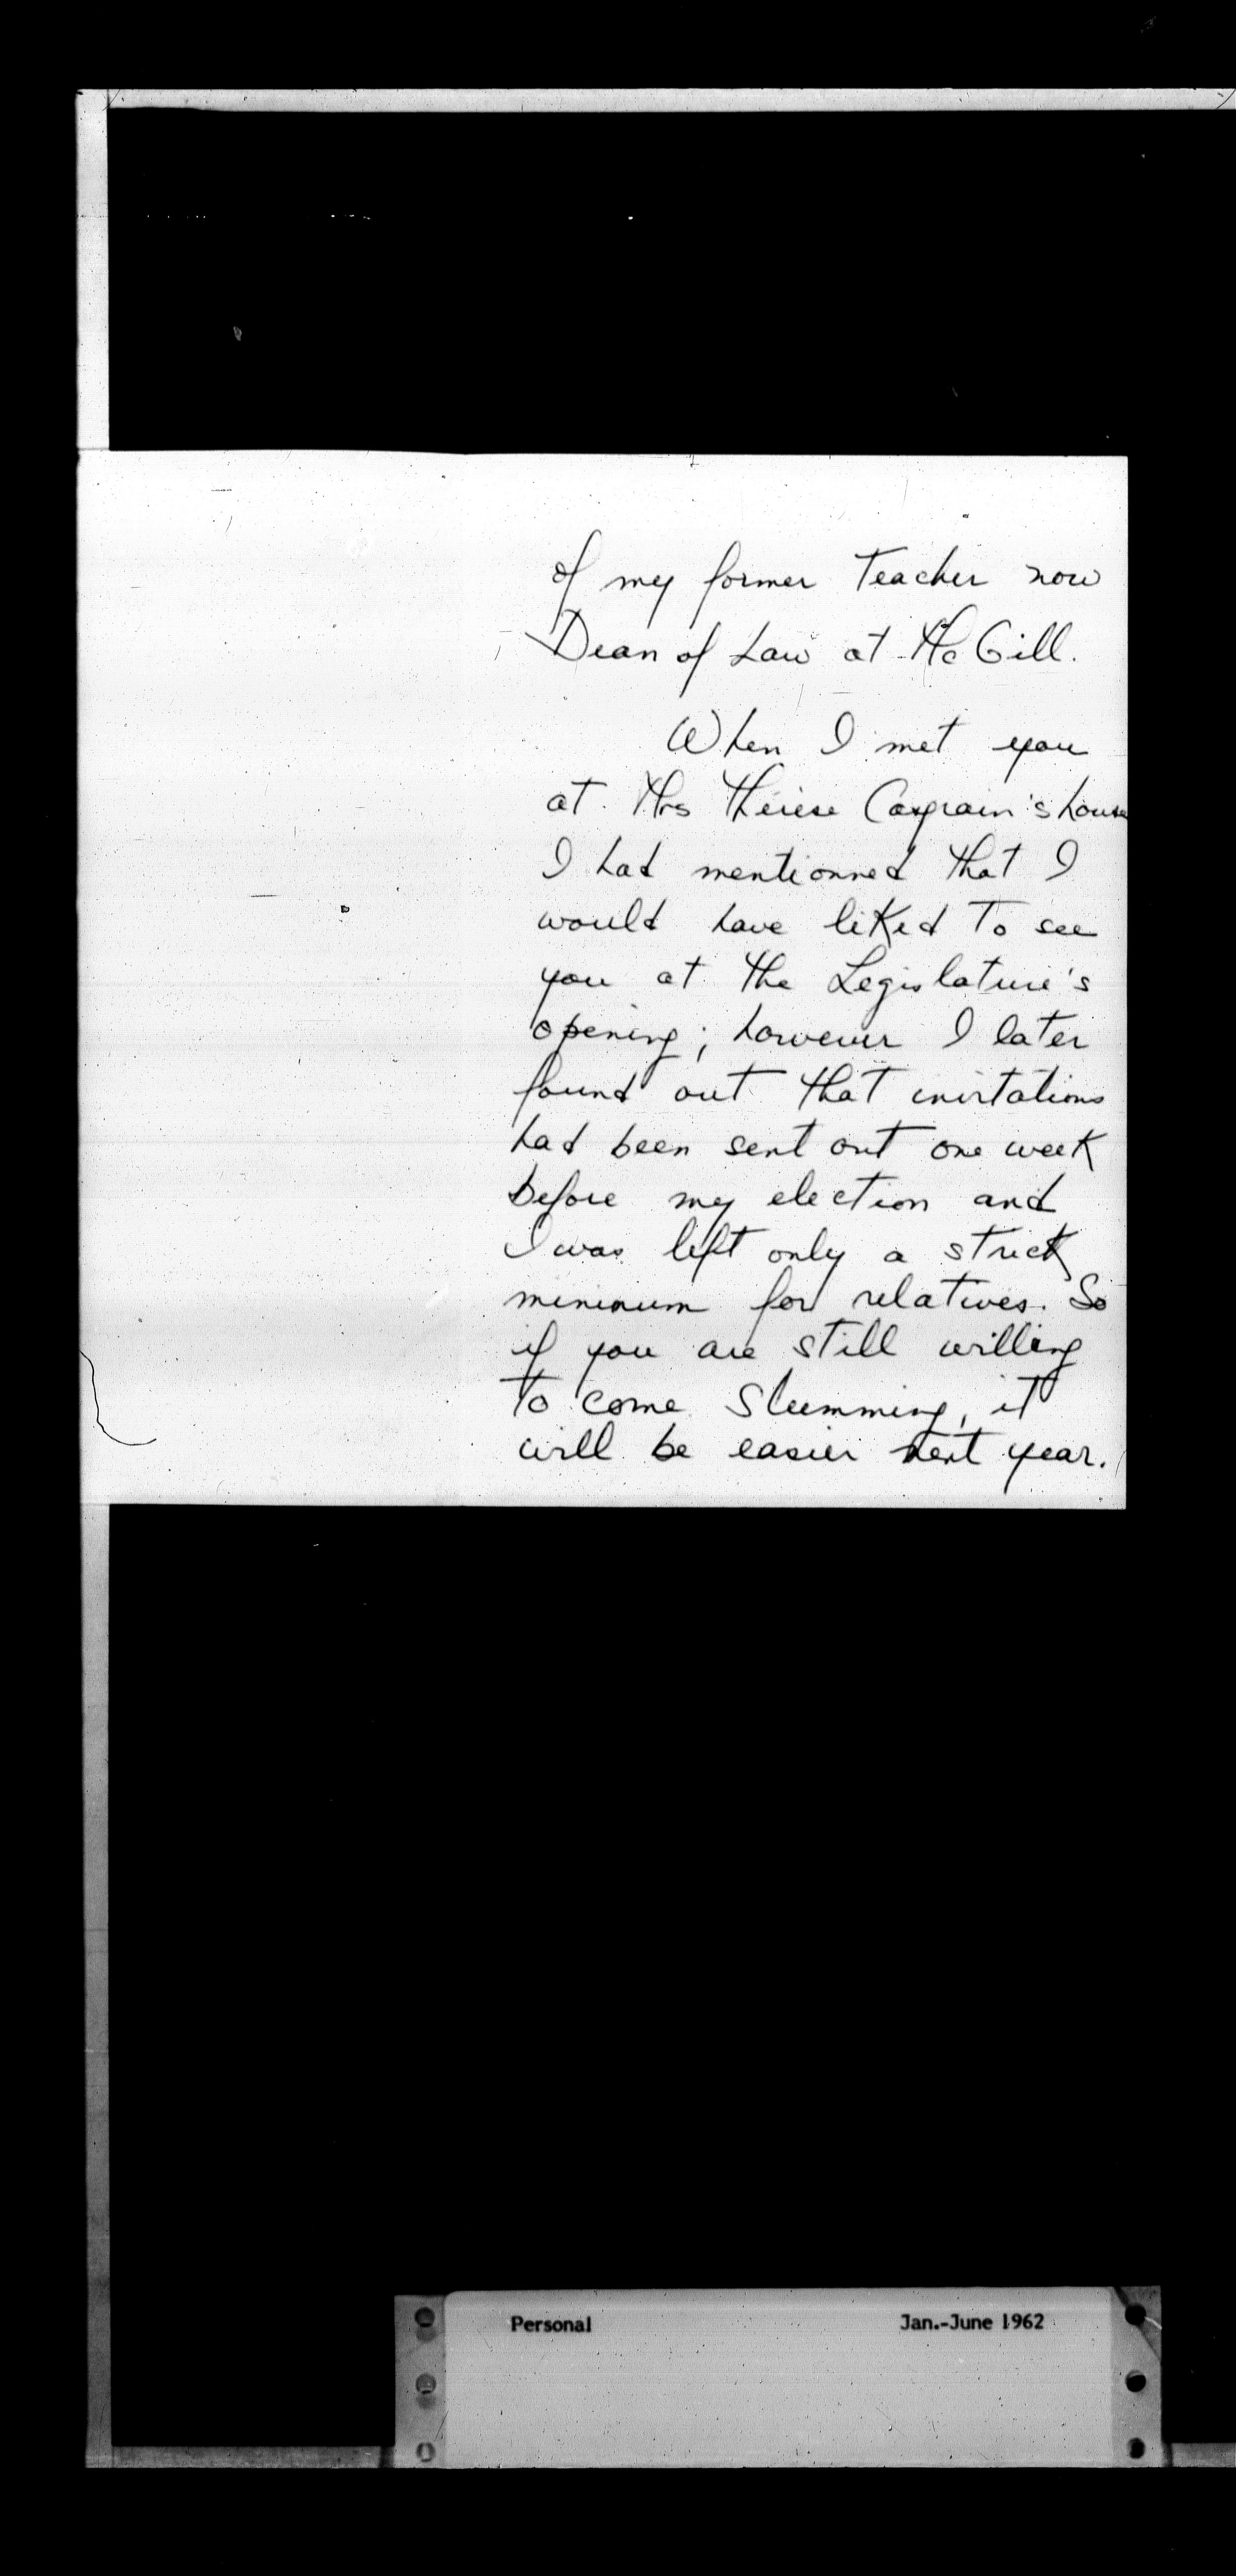 of my former Teacher now
Dean of Law at McGill.
When I met you
at Mrs Thérèse Casgrain's house
I had mentionned that I
would have liked To see
you at the Legislature's
opening; however I later
found out that invitations
had been sent out one week
before my election and
I was left only a strict
minimum for relatives. So
if you are still willing
to come slumming, it
will be easier next year.
Personal Jan.-June 1962